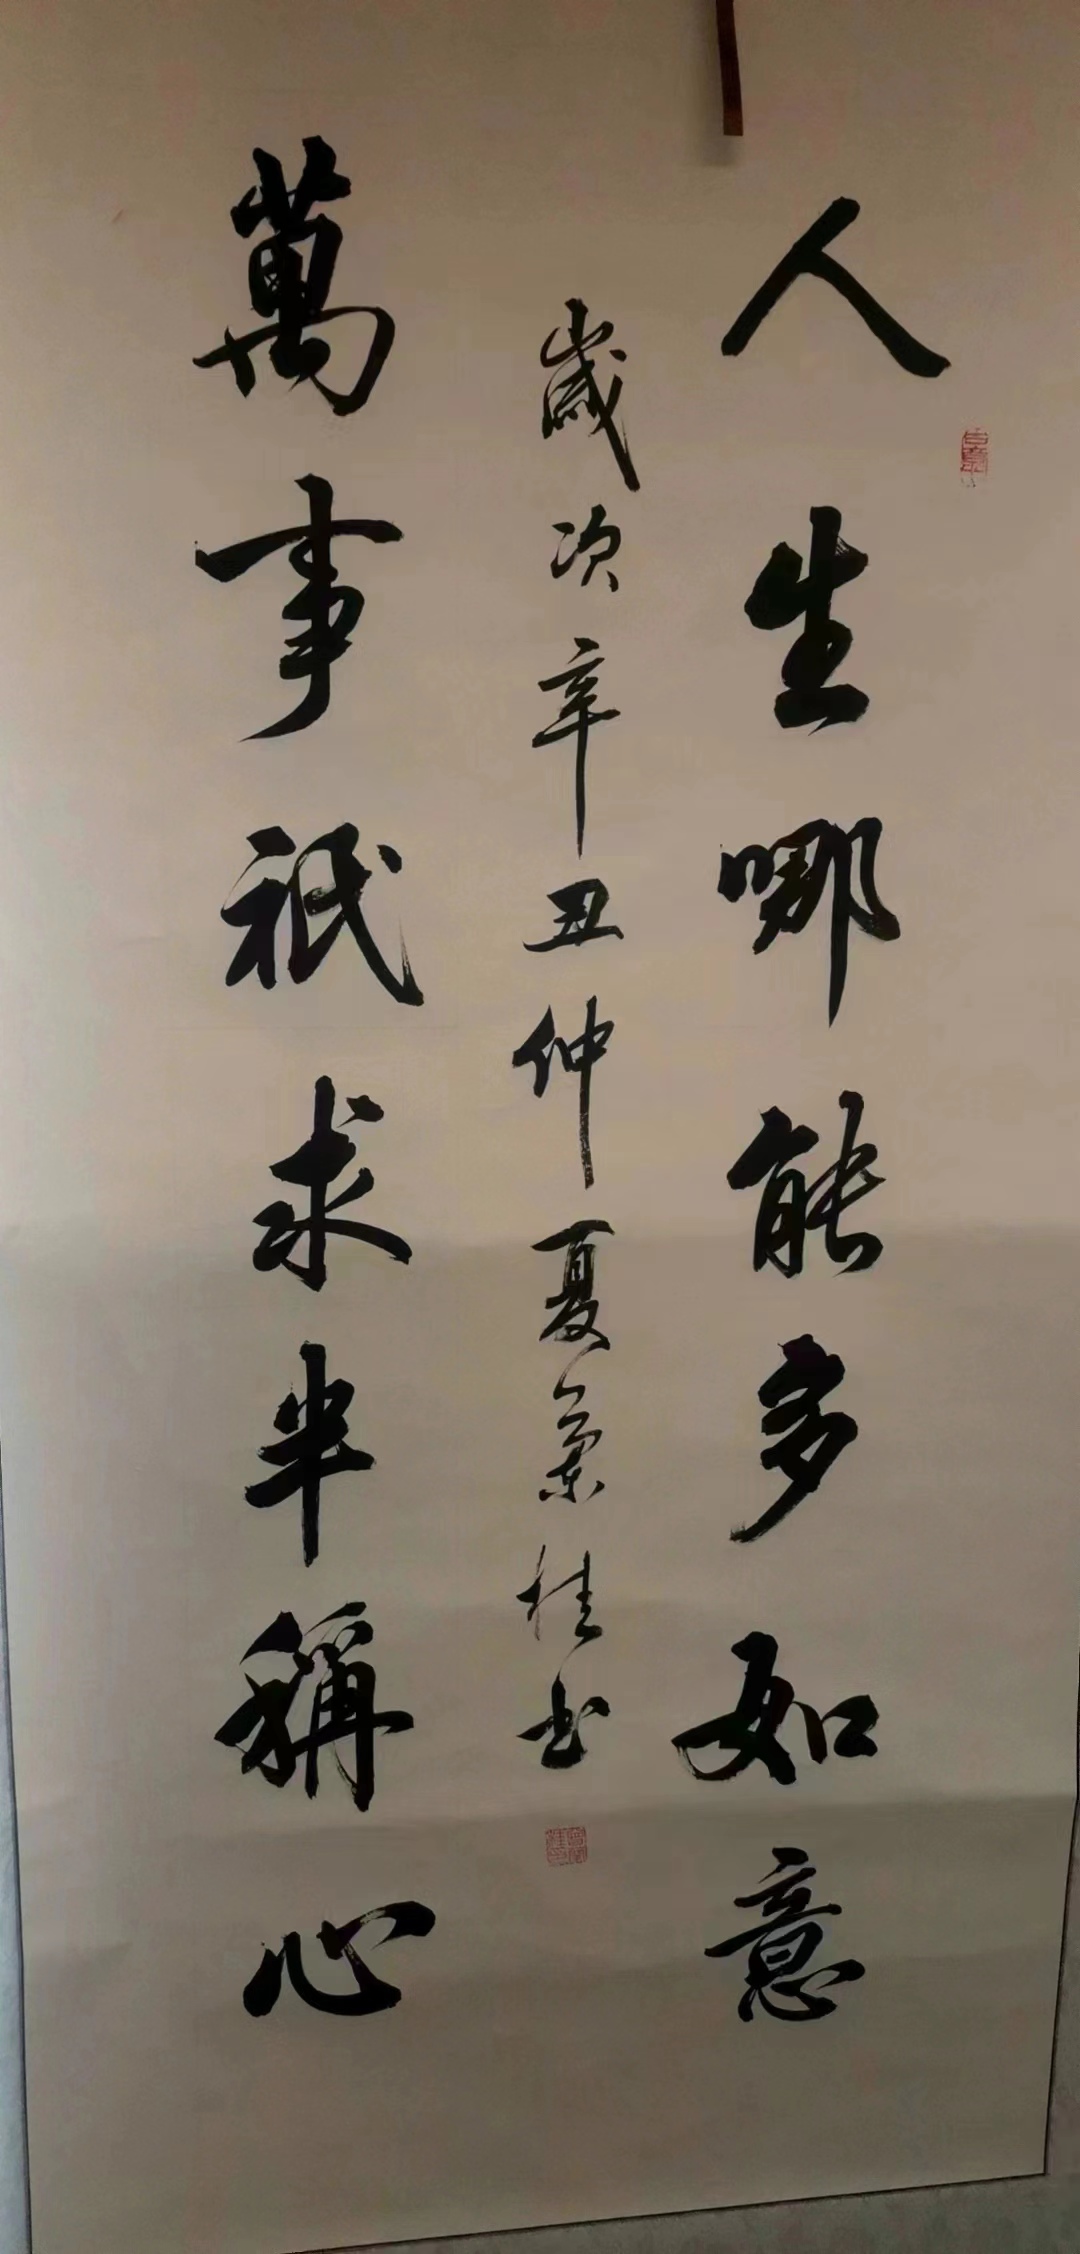 人生哪能多如意
萬事祇求半稱心
歲次辛丑仲夏 桂书